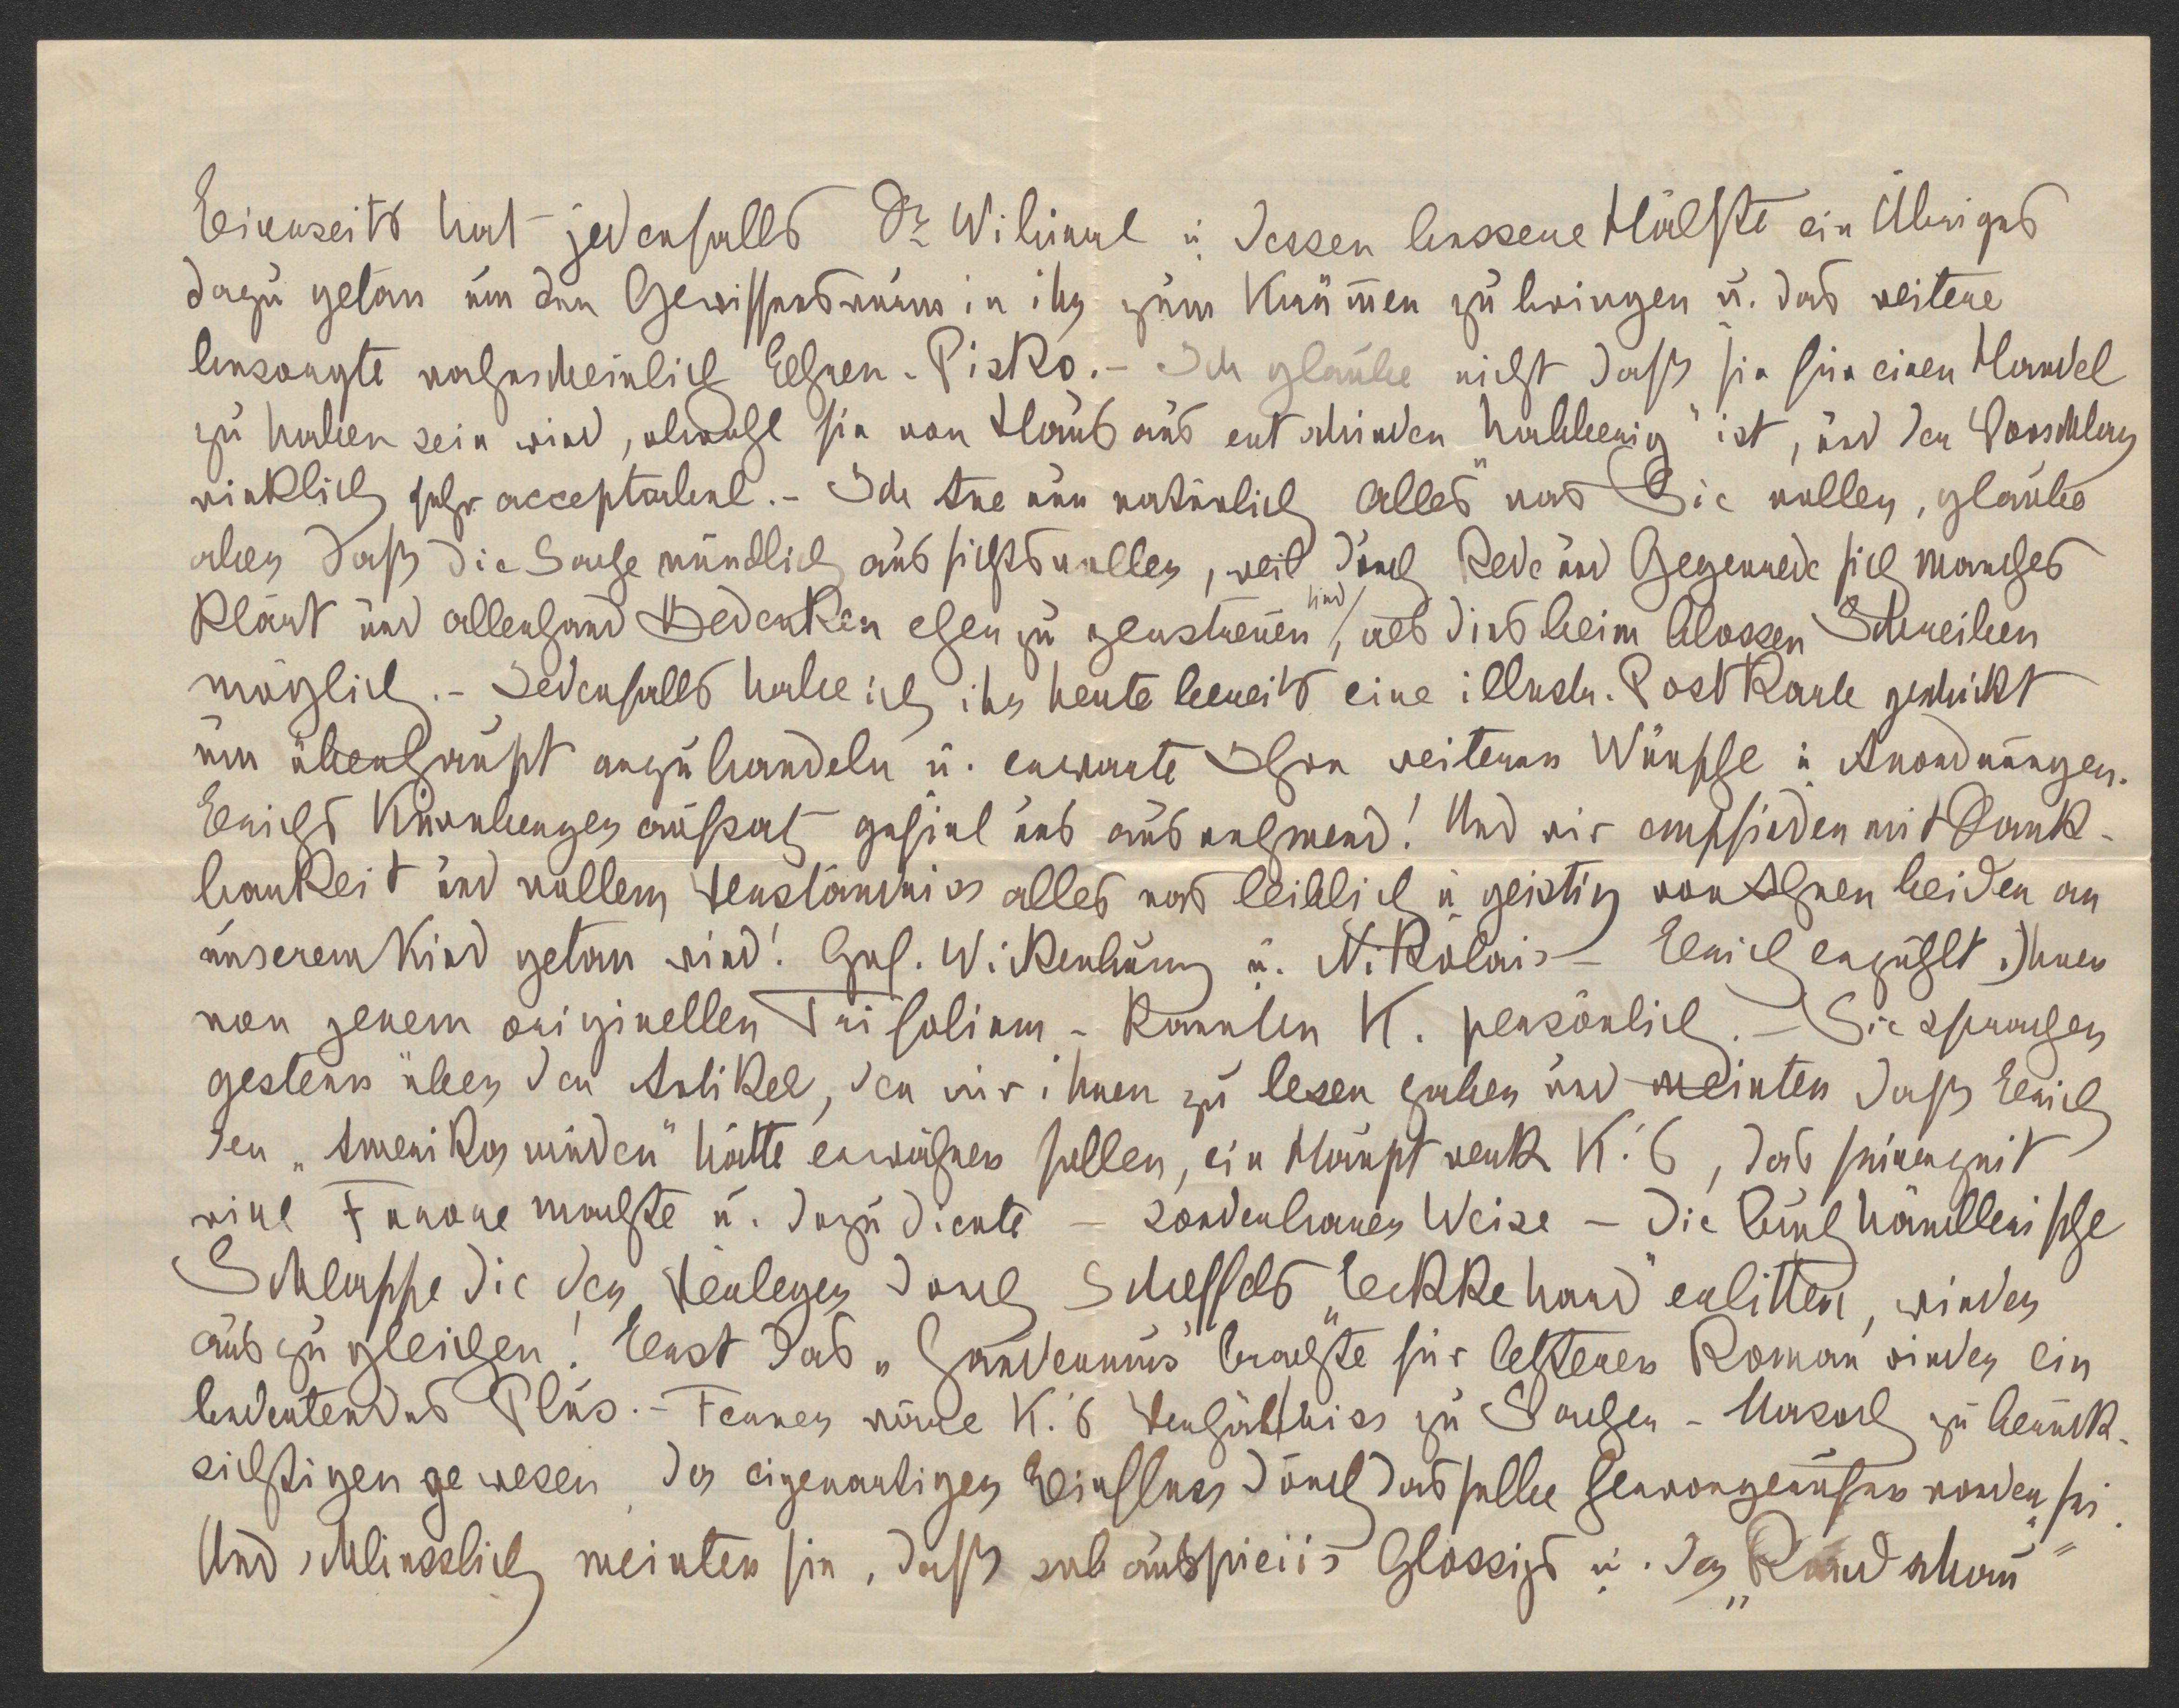 Einerseits hat jedenfalls Dr Wibiral u. dessen bessere Hälfte ein Übriges
dazu getan um den Gewissenswurm in ihr zum Krümen zu bringen u. das weitere
besorgte wahrscheinlich Ehren-Pisko.- Ich glaube nicht daß sie für einen Handel
zu haben sein wird, obwohl sie von Haus aus entschieden "habberig" ist, und der Vorschlag
wirklich sehr acceptabel.- Ich tue nun natürlich alles was Sie wollen, glaube
aber daß die Sache mündlich aussichtsvoller, weil durch Rede und Gegenrede sich manches
klärt und allerhand Bedenken eher zu zerstreuen sind, als dies beim blossen Schreiben
möglich.- Jedenfalls habe ich ihr heute bereits eine illustr. Postkarte geschickt
um überhaupt anzubandeln u. erwarte Ihre weiteren Wünsche u. Anordnungen.
Erichs Kürnbergeraufsatz gefiel uns ausnehmend! Und wir empfinden mit Dank-
barkeit und vollem Verständniss alles was leiblich u. geistig von Ihnen beiden an
unserem Kind getan wird! Grf. Wickenburg u. Nikolais - Erich erzählt Ihnen
von jenem originellen Trifolium - kannten K. persönlich.- Sie sprachen
gestern über den Artikel, den wir ihnen zu lesen gaben und meinten daß Erich
den „Amerikamüden" hätte erwähnen sollen, ein Hauptwerk K.'s, das seinerzeit
viel Furore machte u. dazu diente - sonderbarer Weise - die buchhändlerische
Schlappe die der Verleger durch Scheffels „Eckkehard" erlitten, wieder
auszugleichen! Erst das „Gaudeamus" brachte für letzteren Roman wieder ein
bedeutendes Plus.- Ferner wäre K.'s Verhältniss zu Sacher-Masoch zu berück-
sichtigen gewesen, der eigenartigen Einfluss durch dasselbe hervorgerufen worden sei.
Und schliesslich meinten sie, daß sub auspiciis Glossys u. der „Rundschau"